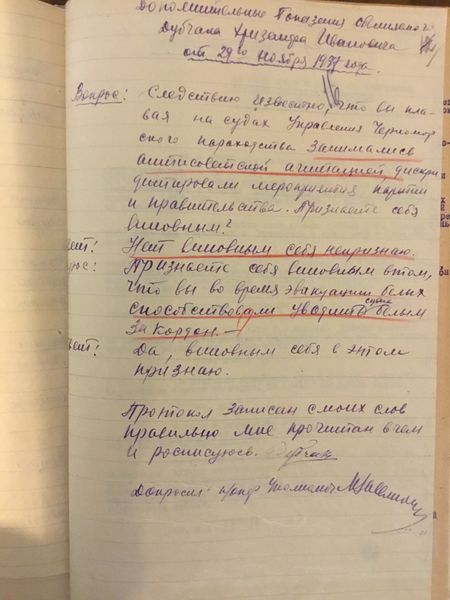 Дополнительные показания обвиняемого
Дубчака Хризандра Ивановича
от 29го ноября 1937 года.
Вопрос: Следствию известно, что вы пла-
вая на судах Управления Черномор
ского пароходства занимались
антисоветской агитацией, дискри
дитировали мероприятия партии
и правительства. Признаете себя
виновным?
вет: Нет виновным себя непризнаю.
рос: Признаете себя виновным в том,
что вы во время эвакуации белых
способствовали уводить суда белым
за кордон. —
вет: Да, виновным себя в этом
признаю.
Протокол записан с моих слов
правильно мне прочитан в чем
и росписуюсь.
Допросил: